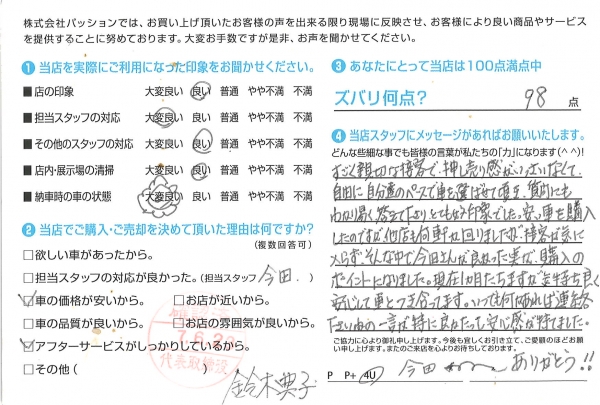 株式会社パッションでは、お買い上げ頂いたお客様の声を出来る限り現場に反映させ、お客様により良い商品やサービス
を提供することに努めております。大変お手数ですが是非、お声を聞かせてください。
1 当店を実際にご利用になった印象をお聞かせください。
■店の印象 大変良い 良い 普通 やや不満 不満
■担当スタッフの対応 大変良い 良い 普通 やや不満 不満
■その他のスタッフの対応 大変良い 良い 普通 やや不満 不満
■店内・展示場の清掃 大変良い 良い 普通 やや不満 不満
■納車時の車の状態 大変良い 良い 普通 やや不満 不満
2 当店でご購入・ご売却を決めて頂いた理由は何ですか?
(複数回答可)
□欲しい車があったから。
□担当スタッフの対応が良かった。(担当スタッフ 今田 )
□車の価格が安いから。 □お店が近いから。
□車の品質が良いから。 □お店の雰囲気が良いから。
□アフターサービスがしっかりしているから。
□その他( )
代表取締役
鈴木典子
3 あなたにとって当店は100点満点中
ズバリ何点? 98 点
4 当店スタッフにメッセージがあればお願いいたします。
どんな些細な事でも皆様の言葉が私たちの「力」になります(^^)!
すごく親切な接客で、押し売り感がいっさいなくて、
自由に自分達のペースで車を選ばせて頂き、質問にも
わかり易く答えて下さりとても好印象でした。安い車を購入
したのですが他店も何軒か回りましたが接客が気に
入らず、そんな中で今田さんが良かった事が、購入の
ポイントになりました。現在1カ月たちますが気持ち良く
安心して車とつき合ってます。いつでも何かあれば連絡
下さいねの一言が特に良かった。安心感が持てました。
ご協力に心より御礼申し上げます。今後も宜しくお引き立て、ご愛顧のほどお願
い申し上げます。またのご来店を心よりお待ちしております。
P P+ 4U 今田 ありがとう!!